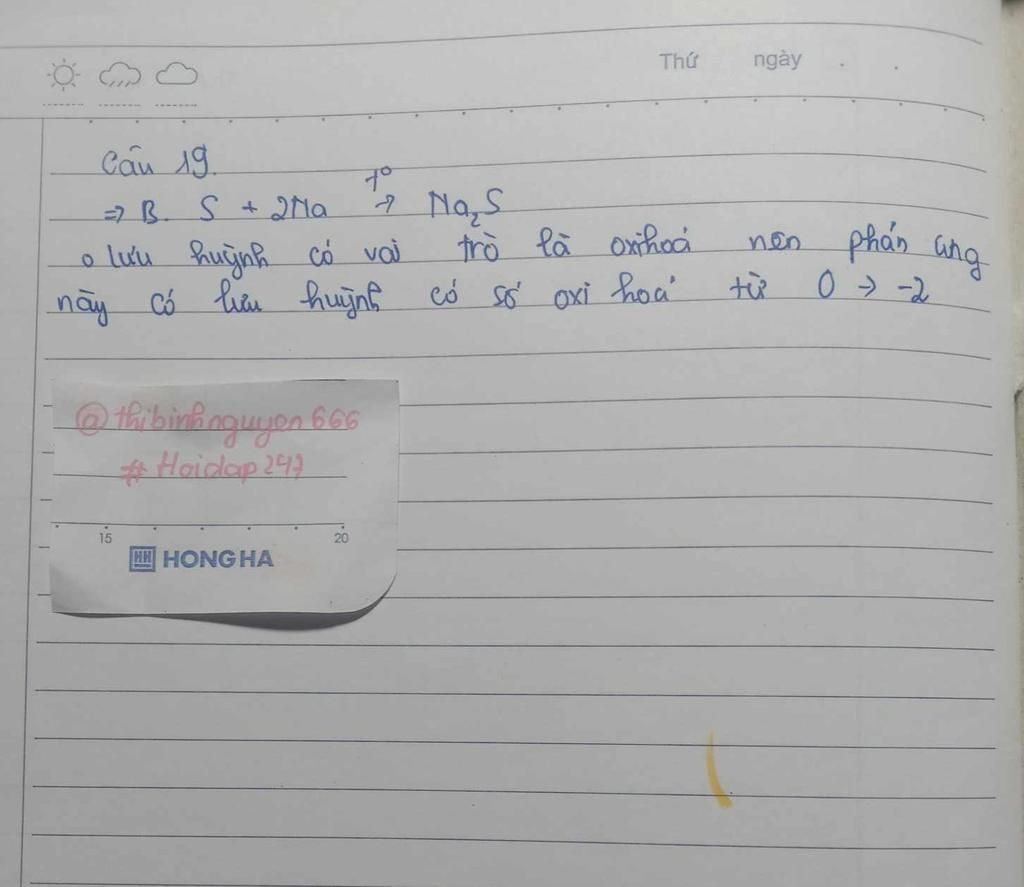 Thứ ngày . .
Câu 19.
=> B. S + 2Na t° → Na₂S
o lưu huỳnh có vai trò là oxihoá nên phản ứng
này có lưu huỳnh có số oxi hoá từ 0 → -2
@thibinhnguyen666
#Hoidap247
15 20
HH HONG HA